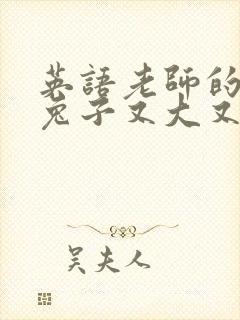 英語老師的
兔子又大又
吳夫人